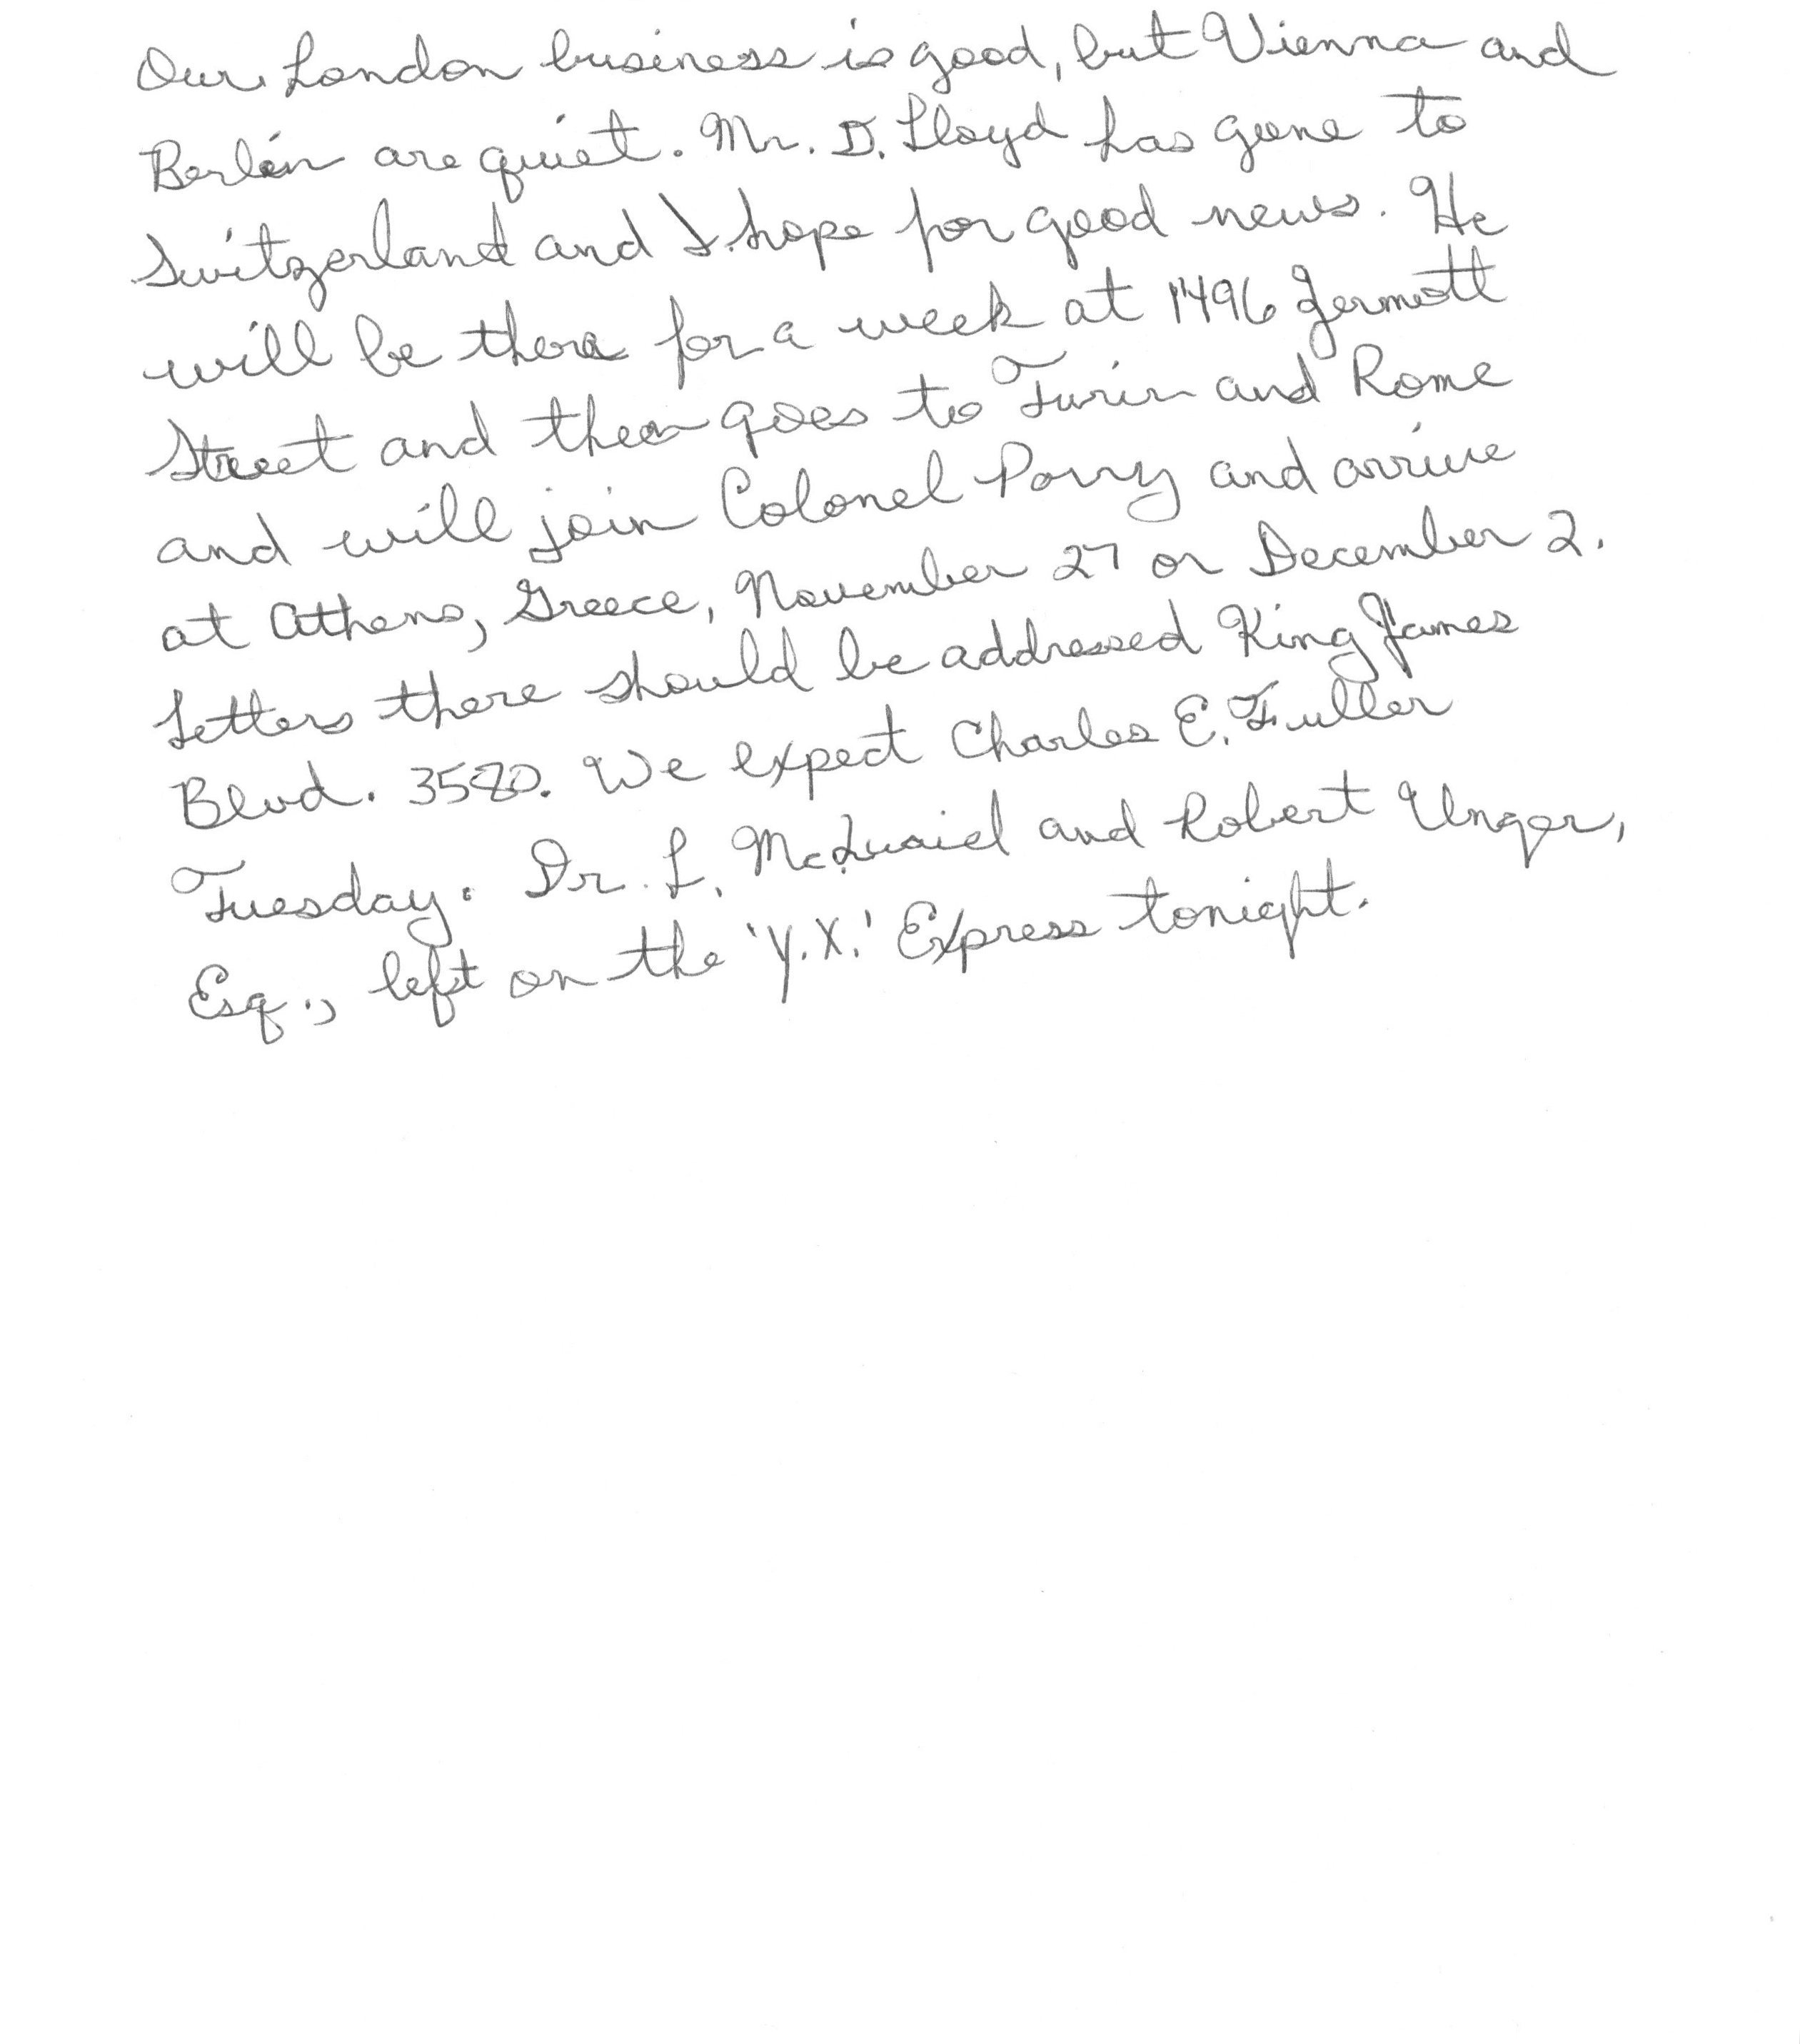 Our London business is good, but Vienna and
Berlin are quiet. Mr. D. Lloyd has gone to
Switzerland and I hope for good news. He
will be there for a week at 1496 Zermott
Street and then goes to Turin and Rome
and will join Colonel Parry and arrive
at Athens, Greece, November 27 or December 2.
Letters there should be addressed King James
Blvd. 3580. We expect Charles E. Fuller
Tuesday. Dr. L. McQuaid and Robert Unger,
Esq., left on the 'Y.X.' Express tonight.